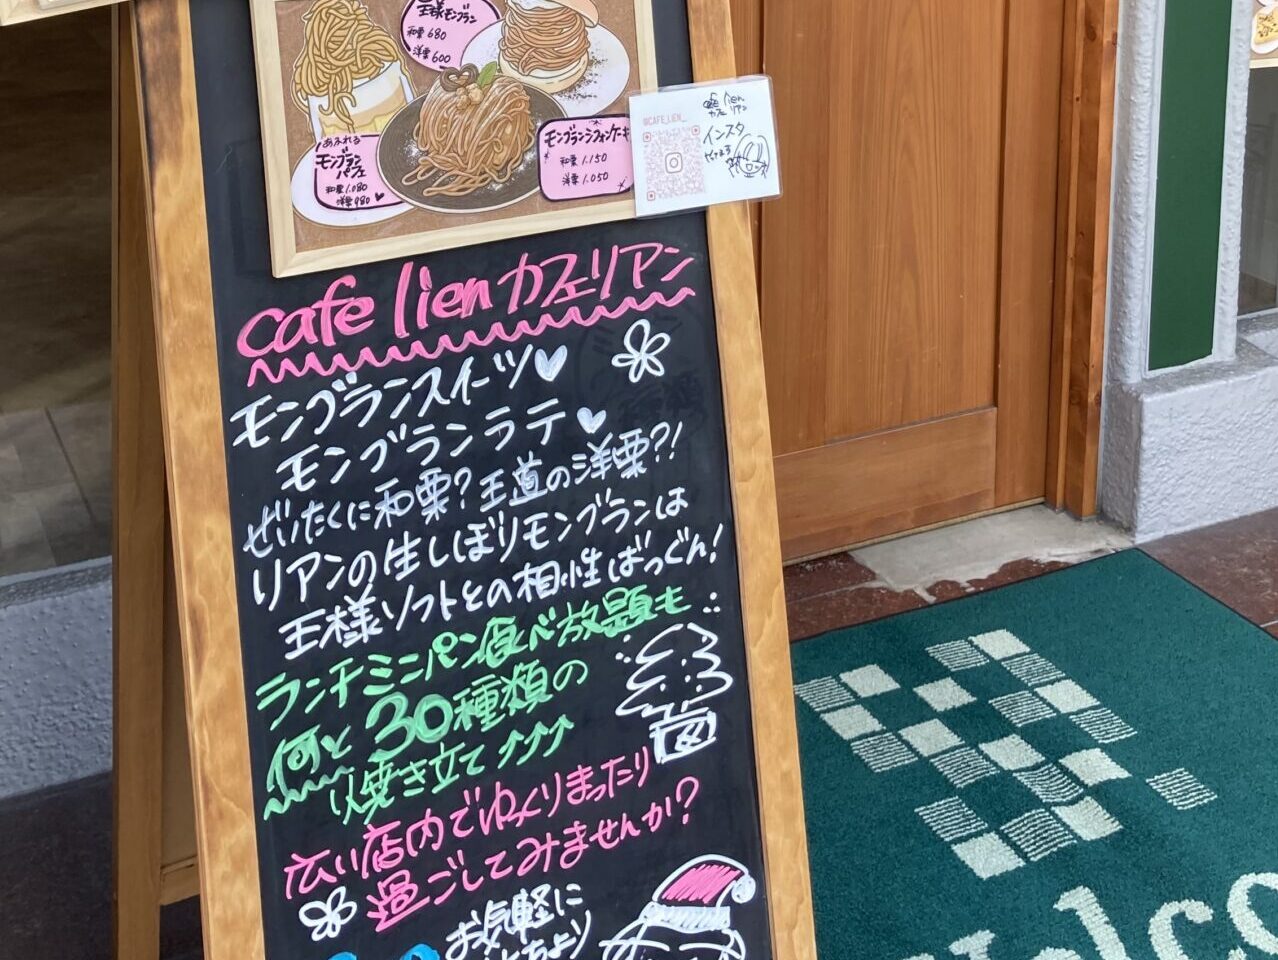 王様モンブラン
和栗 680
洋栗 600
あふれる
モンブラン
パフェ
和栗 1.080
洋栗 980
モンブランシフォンケーキ
和栗 1.150
洋栗 1.050
@CAFE_LIEN_
cafe lien
カフェ リアン
インスタ
やってます
cafe lien カフェリアン
モンブランスイーツ♥
モンブランラテ♥
ぜいたくに和栗?王道の洋栗?!
リアンの生しぼりモンブランは
王様ソフトとの相性ばっぐん!
ランチミニパン食べ放題も
何と30種類の
焼き立て↑↑↑↑
広い店内でゆっくりまったり
過ごしてみませんか?
お気軽に
Welco